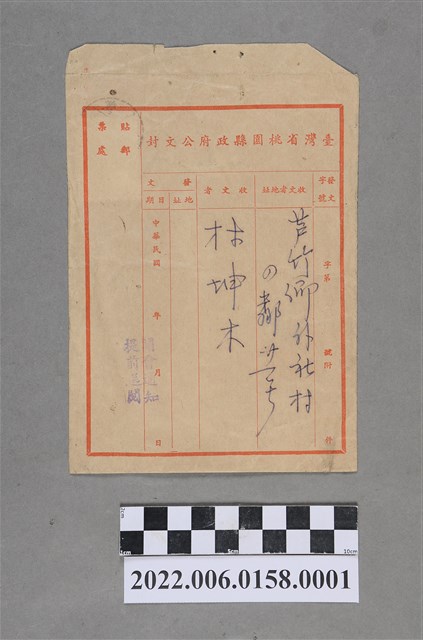 臺灣省桃園縣政府公文封
貼郵
票處
發文
字號
收文者地址
收文者
發文
地址
日期
字第
號附
件
芦竹鄉外社村
林坤木
中華民國
年
月
日
開會通知
提前送閱
2cm
0cm
5cm
10cm
2022.006.0158.0001